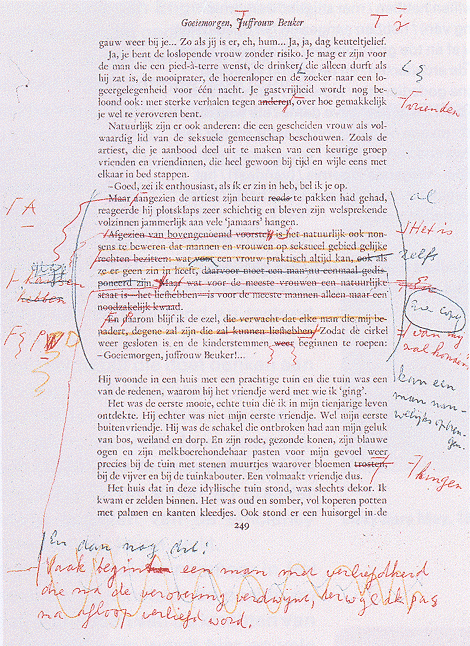 Goeiemorgen, Juffrouw Beuker
gauw weer bij je... Zo als jij is er, eh, hum... Ja, ja, dag keuteltjelief.
Ja, je bent de loslopende vrouw zonder risico. Je mag er zijn voor
de man die een pied-à-terre wenst, de drinker, die alleen durft als
hij zat is, de mooiprater, de hoerenloper en de zoeker naar een lo-
geergelegenheid voor één nacht. Je gastvrijheid wordt nog be-
loond ook: met sterke verhalen tegen anderen, over hoe gemakkelijk
vrienden
je wel te veroveren bent.
Natuurlijk zijn er ook anderen: die een gescheiden vrouw als vol-
waardig lid van de seksuele gemeenschap beschouwen. Zoals de
artiest, die je aanbood deel uit te maken van een keurige groep
vrienden en vriendinnen, die heel gewoon bij tijd en wijle eens met
elkaar in bed stappen.
–Goed, zei ik enthousiast, als ik er zin in heb, bel ik je op.
Maar aangezien de artiest zijn beurt reeds te pakken had gehad,
al
reageerde hij plotsklaps zeer schichtig en bleven zijn welsprekende
volzinnen jammerlijk aan vele 'jamaars' hangen.
Afgezien van bovengenoemd voorstel, is het natuurlijk ook non-
Het is
sens te beweren dat mannen en vrouwen op seksueel gebied gelijke
rechten bezitten: wat voor een vrouw praktisch altijd kan, ook als
zelfs
ze er geen zin in heeft, daarvoor moet een man nu eenmaal gedis-
poneerd zijn. Maar wat voor de meeste vrouwen een natuurlijke
hebben
staat is –het liefhebben– is voor de meeste mannen alleen maar een
noodzakelijk kwaad.
En daarom blijf ik de ezel, die verwacht dat elke man die mij be-
nadert, degene zal zijn die zal kunnen liefhebben. Zodat de cirkel
weer gesloten is en de kinderstemmen weer beginnen te roepen:
–Goeiemorgen, juffrouw Beuker!...
kan een
man
Hij woonde in een huis met een prachtige tuin en die tuin was een
van de redenen, waarom hij het vriendje werd met wie ik 'ging'.
Het was de eerste mooie, echte tuin die ik in mijn tienjarige leven
ontdekte. Hij echter was niet mijn eerste vriendje. Wel mijn eerste
buitenvriendje. Hij was de schakel die ontbroken had aan mijn geluk
van bos, weiland en dorp. En zijn rode, gezonde konen, zijn blauwe
ogen en zijn melkboerehondehaar pasten voor mijn gevoel weer
precies bij de tuin met stenen muurtjes waarover bloemen trosten,
hingen
bij de vijver en bij de tuinkabouter. Een volmaakt vriendje dus.
Het huis dat in deze idyllische tuin stond, was slechts dekor. Ik
kwam er zelden binnen. Het was oud en somber, vol koperen potten
met palmen en kanten kleedjes. Ook stond er een huisorgel in de
249
En dan nog dit:
Vaak begint een man met verliefdheid
die na de verovering verdwijnt, terwijl ik pas
na afloop verliefd word.